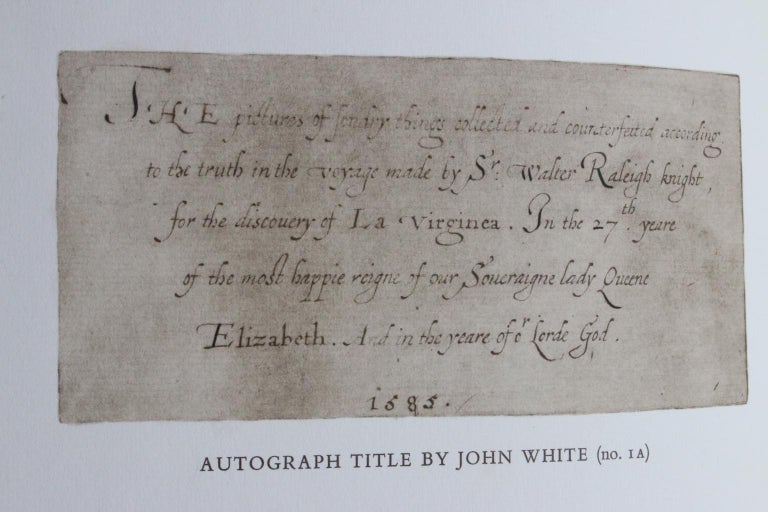 THE pictures of sondry things collected and counterfeited according
to the truth in the voyage made by Sr: Walter Raleigh knight,
for the discovery of La Virginea. In the 27th. yeare
of the most happie reigne of our Soueraigne lady Queene
Elizabeth. And in the yeare of or Lorde God.
1585.
AUTOGRAPH TITLE BY JOHN WHITE (no. 1A)